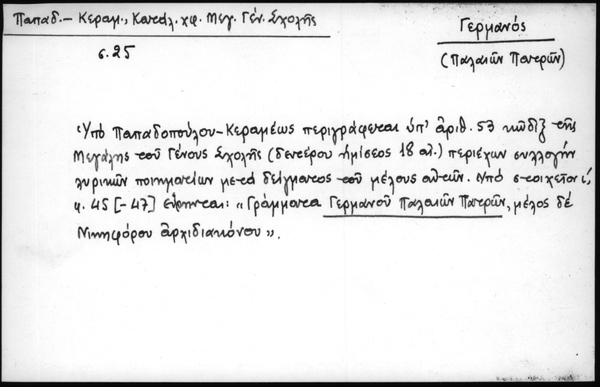 Παπαδ.– Κεραμ., Κατάλ. χφ. Μεγ. Γέν. Σχολῆς
Γερμανός
σ. 25
(Παλαιῶν Πατρῶν)
Ὑπὸ Παπαδοπούλου–Κεραμέως περιγράφεται ὑπ' ἀριθ. 53 κῶδιξ τῆς
Μεγάλης τοῦ Γένους Σχολῆς (δευτέρου ἡμίσεος 18 αἰ.) περιέχων συλλογὴν
λυρικῶν ποιηματίων μετὰ δείγματος τοῦ μέλους αὐτῶν. Ὑπὸ στοιχεῖοι ι,
φ. 45 [–47] εὕρηται: «Γράμματα Γερμανοῦ Παλαιῶν Πατρῶν, μέλος δὲ
Νικηφόρου ἀρχιδιακόνου».